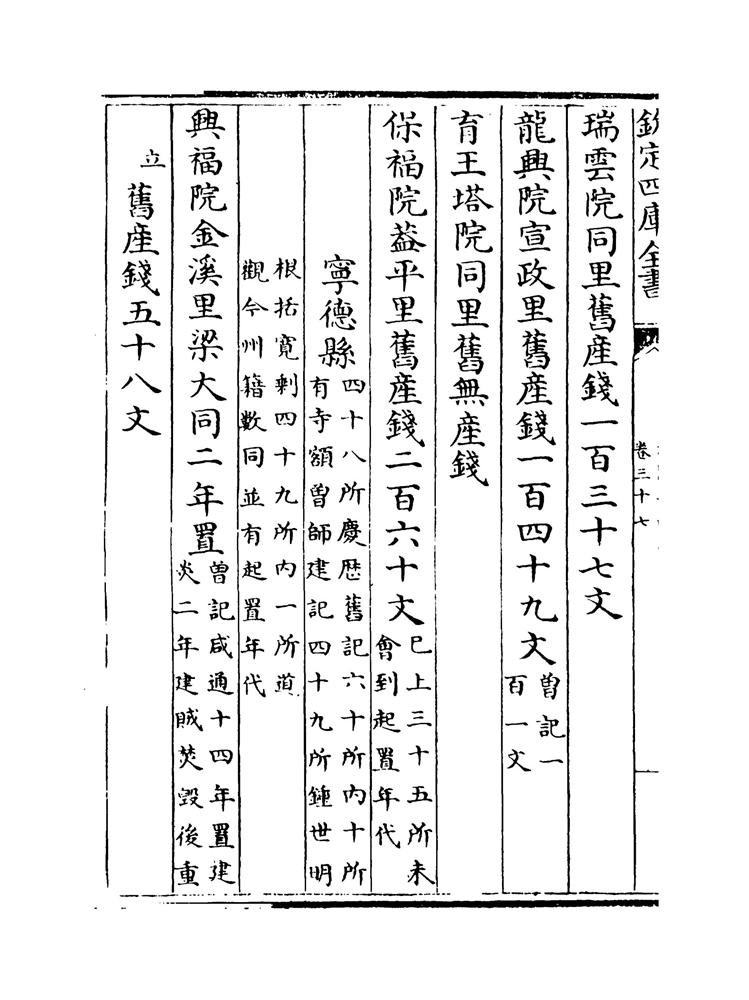 欽定四庫全書
卷三十七
瑞雲院同里舊産錢一百三十七文
龍興院宣政里舊産錢一百四十九文曽記一
百一文
育王塔院同里舊無産錢
保福院葢平里舊産錢二百六十文已上三十五所未
會到起置年代
寧德縣四十八所慶厯舊記六十所内十所
有寺額曽師建記四十九所鍾世明
根括寛剩四十九所内一所道
觀今州籍數同並有起置年代
興福院金溪里梁大同二年置曽記咸通十四年置建
炎二年建賊焚毁後重
立
舊産錢五十八文